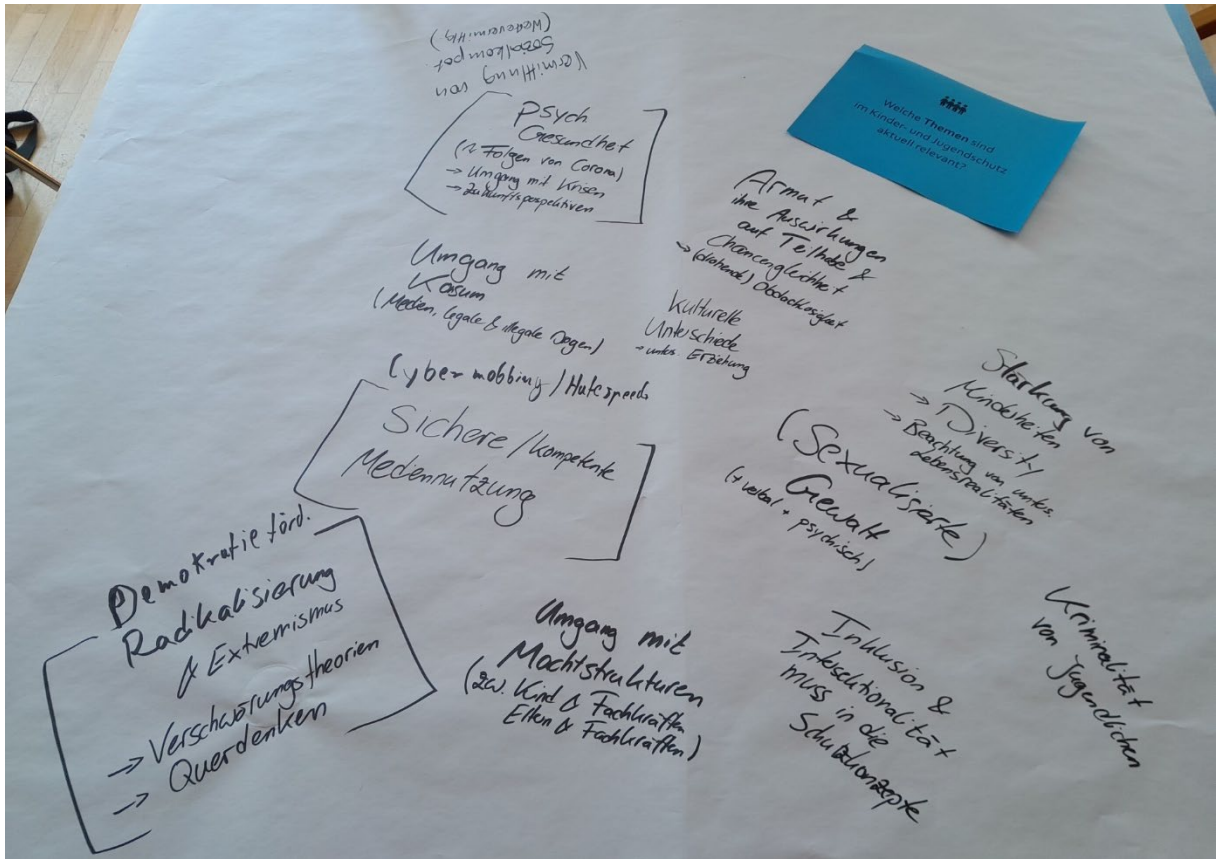 Welche Themen sind
im Kinder- und Jugendschutz
aktuell relevant?
Vermittlung von
Sozialkompet.
(Wertevermittlg.)
Psych
Gesundheit
(~ Folgen von Corona)
→ Umgang mit Krisen
→ Zukunftspespektiven
Armut &
ihre Auswirkungen
auf Teilhabe &
Chancengleichheit
→ (drohende) Obdachlosigkeit
Umgang mit
Kosum
(Medien, legale & illegale Drogen)
Kulturelle
Unterschiede
→ unters. Erziehung
Cybermobbing / Hatespeech
Sichere / kompetente
Mediennutzung
Stärkung von
Minderheiten
→ Diversity
→ Beachtung von unters.
Lebensrealitäten
(Sexualisierte)
Gewalt
(+ verbal + psychisch)
Demokratieförd.
Radikalisierung
& Extremismus
→ Verschwörungstheorien
→ Querdenken
Umgang mit
Machtstrukturen
(zw. Kind & Fachkräften
Eltern & Fachkräften)
Inklusion &
Intersektionalität
muss in die
Schutzkonzepte
Kriminalität
von Jugendlichen